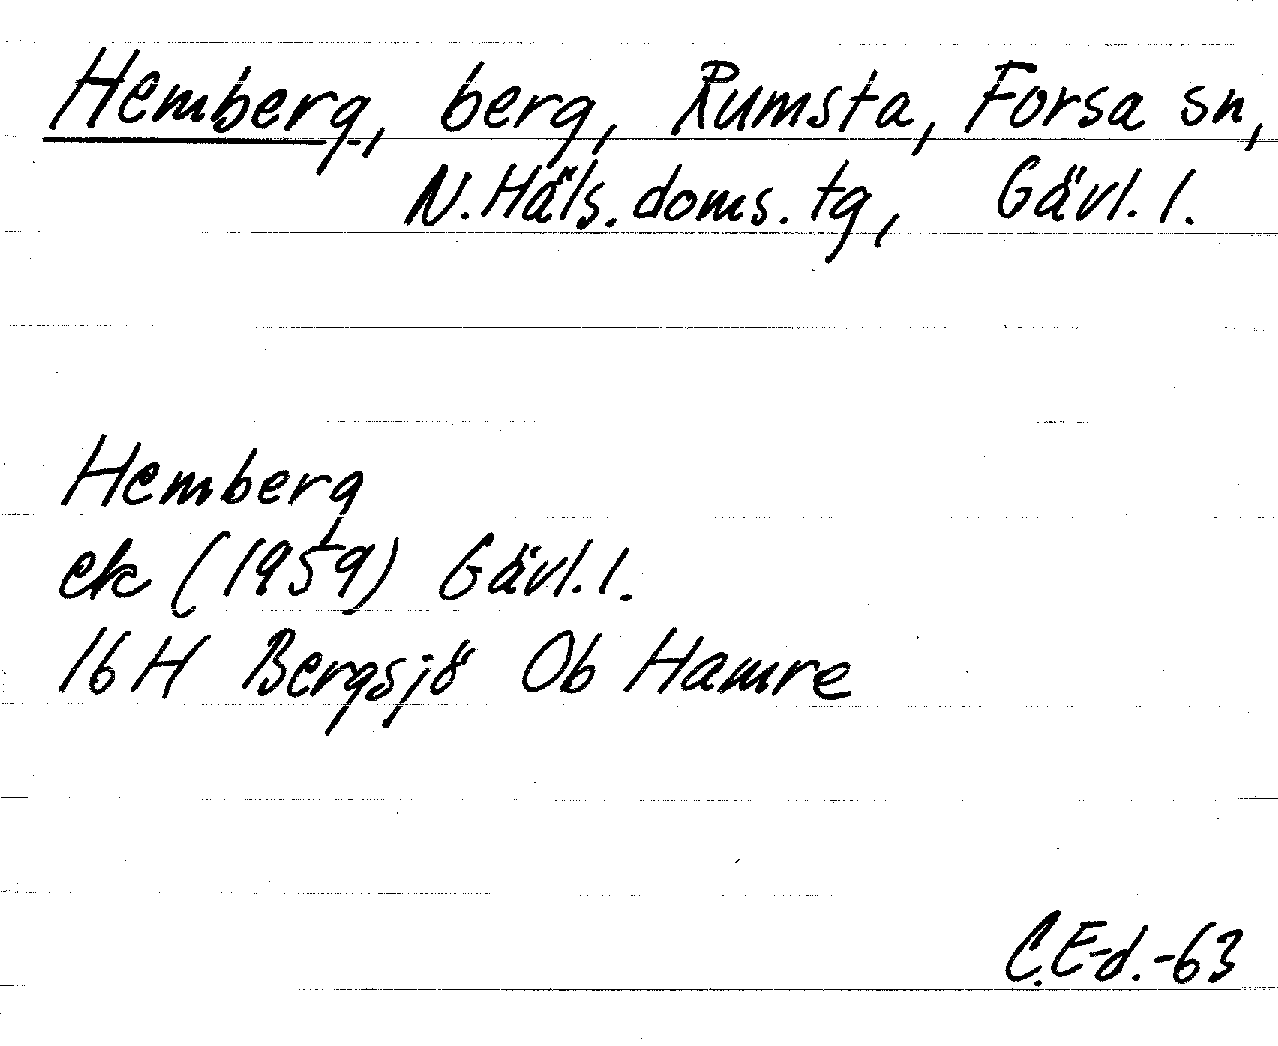 Hemberg, berg, Rumsta, Forsa sn,
N. Häls. doms. tg, Gävl. l.
Hemberg
ek (1959) Gävl. l.
16 H Bergsjö Ob Hamre
C.E-d.-63